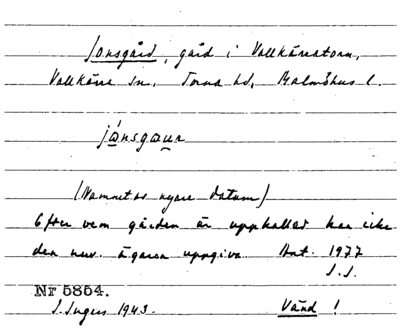 Jonsgård, gård i Vallkärratorn,
Vallkärra sn. Torna hd, Malmöhus l.
jånsgaur
(Namnet av nyare datum)
Efter vem gården är uppkallad kan icke
den nuv. ägaren uppgiva. Ant. 1977
J.J.
Nr 5854.
J. Ingers 1943. Vänd!